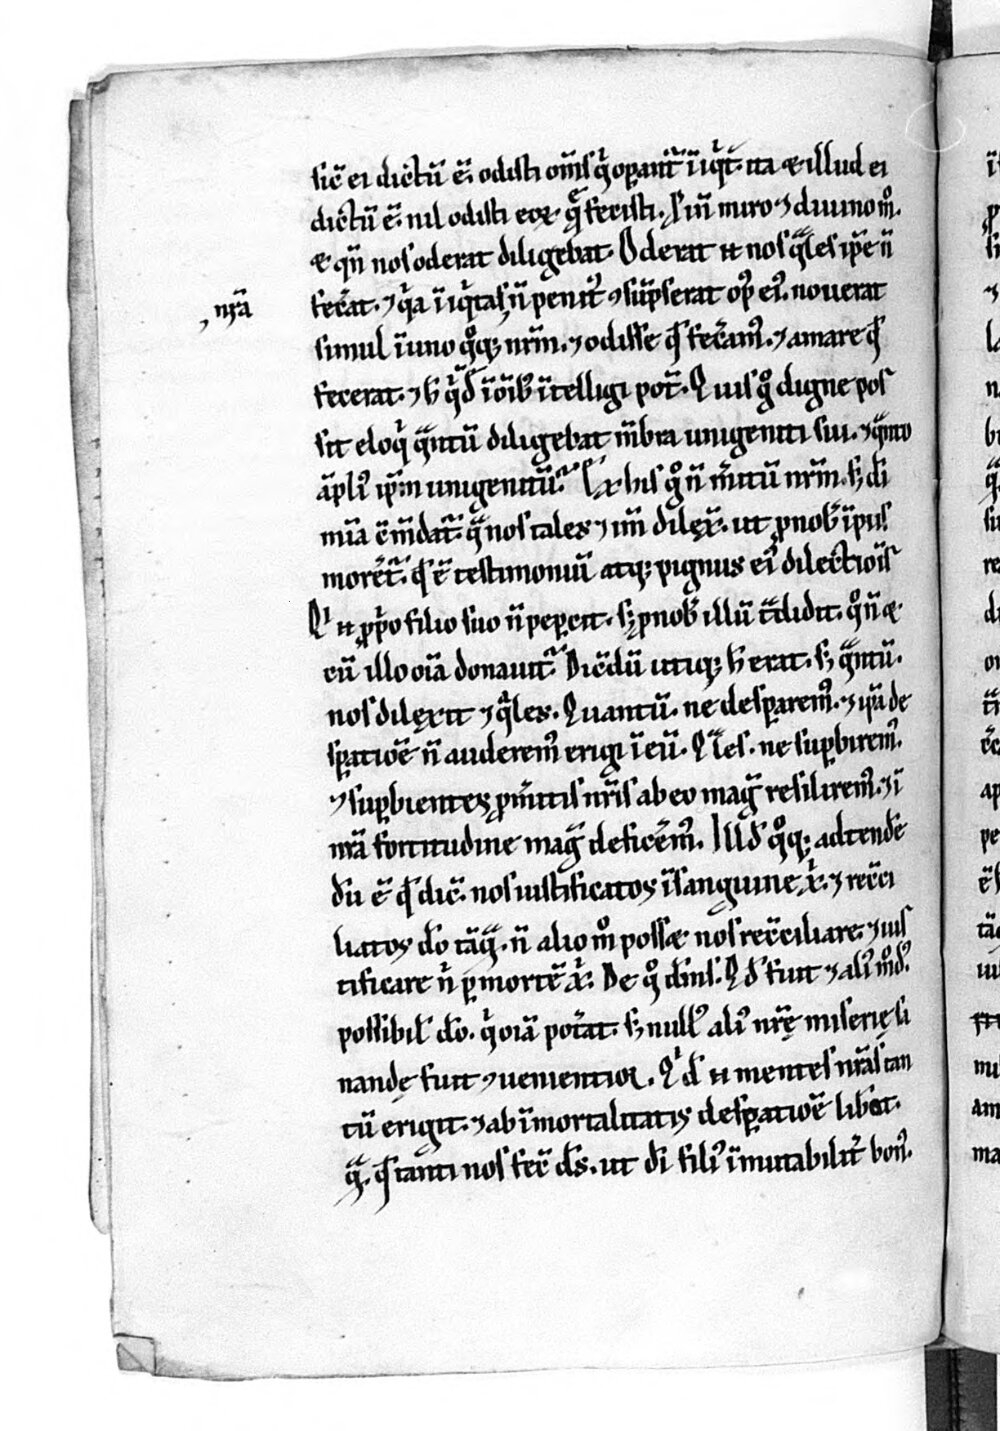 sic̄ ei dictū ē. odisti om̄s q̇ operant̄ īiq̇t̄. ita & illud ei
dictū ē. nil odisti eoꝝ q̄ fecisti. S in̄ miro ⁊ diuino m̊.
& qn̄ nos oderat diligebat. Oderat n̄ nos q̄les ip̄e n̄
fecat̄. ⁊ q̇a īiq̇tas, n̄ penit᷒ ꝯsūpserat op᷒ ei᷒. nouerat
, nr̄a
simul ī uno q̊q; nrm̄. ⁊ odisse qd̄ fecam᷒. ⁊ amare qd̄
fecerat. ⁊ h̄ q̇d̄ ī oīb᷒ ītelligi pot̄. Quis g̊ digne pos
sit eloq̇ q̄ntū diligebat m̄bra unigeniti sui. ⁊ q̄nto
āpli᷒ ip̄m unigenitū. Ex his g̊ n̄ m̄itū nrm̄. s; di
mīa cm̄dat̄. q̄ nos tales ⁊ im̄ dilex̄. ut p nob̄ īpiis
moret̄. qd̄ ē testimoniū atq; pignus ei᷒ dilectiōis
Qi n̄ pp̄o filio suo n̄ pepcit. s; p nob̄ illū t̄didit. q̊ n̄ &
cū illo oīa donauit. Dicēdū utiq; h̄ erat. s; q̄ntū.
nos dilexit ⁊ q̄les. Quantū. ne desparem᷒. ⁊ ip̄a de
spatiōe n̄ auderem᷒ erigi ī eū. Q̄les. ne supbirem᷒.
⁊ supbientes p m̄itis nr̄is ab eo mag̃ resilirem᷒. ⁊ ī
nr̄a fortitudine mag̃ deficem᷒. Illd̄ q̊q; adtendē
dū ē qd̄ dic̄. nos iustificatos ī sanguine x̄. ⁊ recc̄i
liatos dō tāq̄. n̄ alio m̊ posset nos recc̄iliare. ⁊ ius
tificare n̄ p mortē x̄. De q̊ dm̄s. Qd̄ fuit ⁊ ali᷒ mod᷒.
possibil᷒ dō. q̇ oīa pot̄at. s; null᷒ ali᷒ nr̄ę miserię sa
nandę fuit ꝯuenientior. Qd̄ n̄ mentes nr̄as tan
tū erigit. ⁊ ab īmortalitatis despatiōe libat̄.
q̄. qd̄ tanti nos fec̄ ds̄. ut di fili᷒ īmutabilit̄ bon᷒.